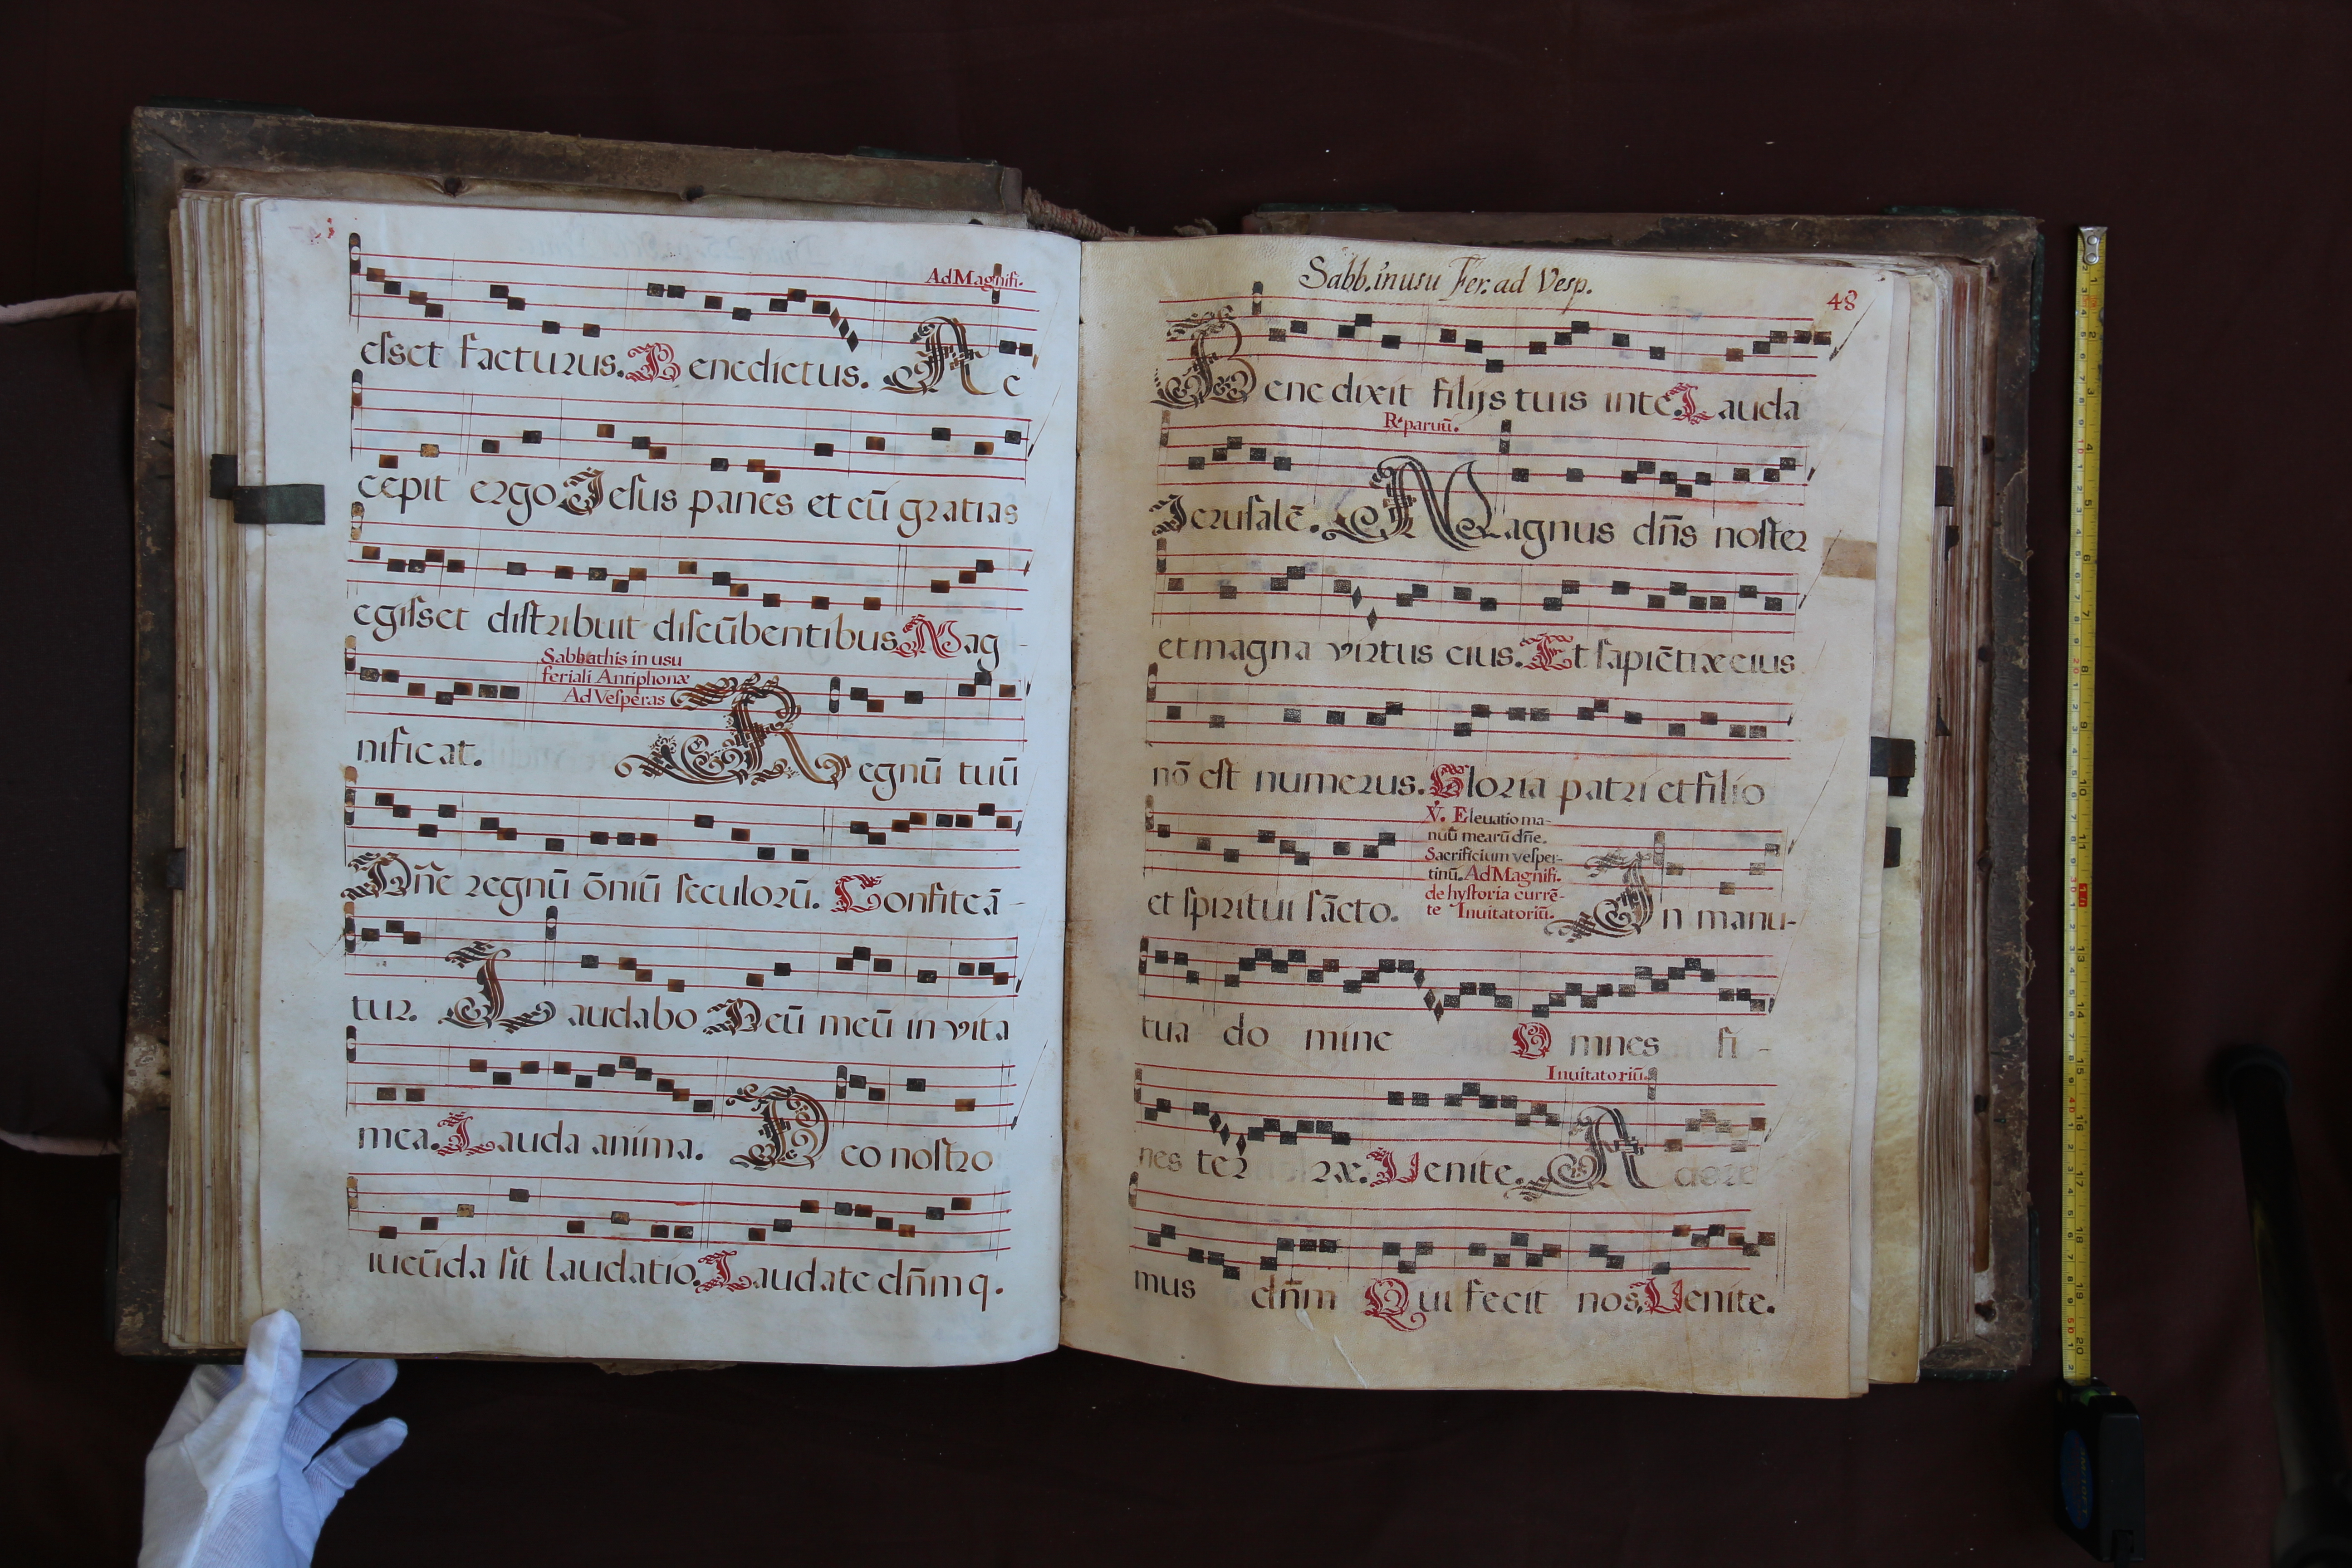 Ad Magnifi.
esset facturus. Benedictus. Ac
cepit ergo Jesus panes et cū gratias
egisset distribuit discūbentibus. Mag-
Sabbathis in usu
feriali Antiphonæ
Ad Vesperas
nificat. Regnū tuū
Dn̄e regnū ōniū seculorū. Confiteā-
tur. Laudabo Deū meū in vita
mea. Lauda anima. Deo nostro
iucūda sit laudatio. Laudate dn̄m q.
Sabb. in usu Fer. ad Vesp.
48
Benedixit filijs tuis in te. Lauda
R. paruū.
Jerusalē. Magnus dn̄s noster
et magna virtus eius. Et sapiētiæ eius
nō est numerus. Gloria patri et filio
V. Eleuatio ma-
nuū mearū dn̄e.
Sacrificium vesper-
tinū. Ad Magnifi.
de hystoria currē-
te Inuitatoriū.
et spiritui sācto. In manu-
tua domine Omnes fi-
Inuitatoriū.
nes terræ. Venite. Adore
mus dn̄m Qui fecit nos. Venite.